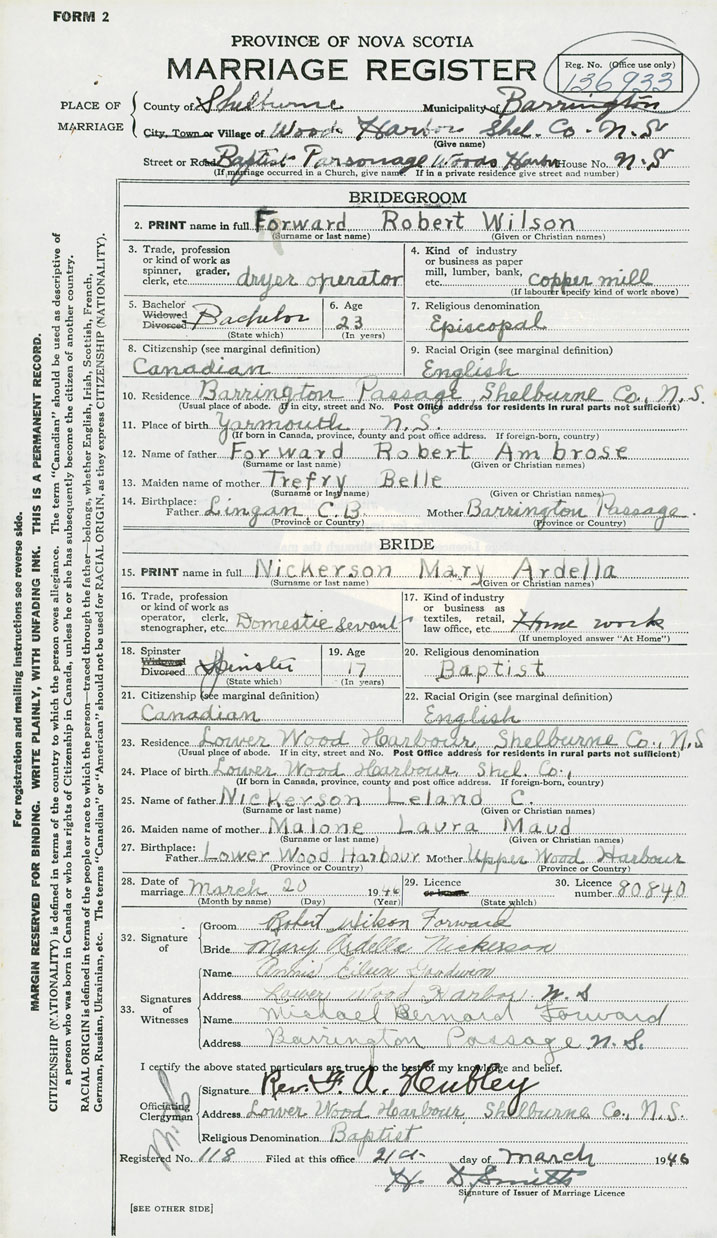 FORM 2
PROVINCE OF NOVA SCOTIA
MARRIAGE REGISTER
Reg. No. (Office use only)
136933
PLACE OF MARRIAGE
County of Shelburne Municipality of Barrington
City, Town or Village of Woods Harbor Shel. Co. N.S
(Give name)
Street or Road Baptist Parsonage Woods Harbor House No. N.S
(If marriage occurred in a Church, give name If in a private residence give street and number)
BRIDEGROOM
2. PRINT name in full Forward Robert Wilson
(Surname or last name) (Given or Christian names)
3. Trade, profession or kind of work as spinner, grader, clerk, etc. dryer operator
4. Kind of industry or business as paper mill, lumber, bank, etc. copper mill
(If labourer specify kind of work above)
5. Bachelor Widowed Divorced Bachelor
(State which)
6. Age 23
(In years)
7. Religious denomination
Episcopal
8. Citizenship (see marginal definition)
Canadian
9. Racial Origin (see marginal definition)
English
10. Residence Barrington Passage, Shelburne Co., N.S.
(Usual place of abode. If in city, street and No. Post Office address for residents in rural parts not sufficient)
11. Place of birth Yarmouth, N.S.
(If born in Canada, province, county and post office address. If foreign-born, country)
12. Name of father Forward Robert Ambrose
(Surname or last name) (Given or Christian names)
13. Maiden name of mother Trefry Belle
(Surname or last name) (Given or Christian names)
14. Birthplace:
Father Lingan C.B. Mother Barrington Passage.
(Province or Country) (Province or Country)
BRIDE
15. PRINT name in full Nickerson Mary Ardella
(Surname or last name) (Given or Christian names)
16. Trade, profession or kind of work as operator, clerk, stenographer, etc. Domestic Sevant
17. Kind of industry or business as textiles, retail, law office, etc. Home work
(If unemployed answer "At Home")
18. Spinster Divorced Spinster
(State which)
19. Age 17
(In years)
20. Religious denomination
Baptist
21. Citizenship (see marginal definition)
Canadian
22. Racial Origin (see marginal definition)
English
23. Residence Lower Wood Harbour, Shelburne Co., N.S
(Usual place of abode. If in city, street and No. Post Office address for residents in rural parts not sufficient)
24. Place of birth Lower Wood Harbour, Shel. Co.,
(If born in Canada, province, county and post office address. If foreign-born, country)
25. Name of father Nickerson Leland C.
(Surname or last name) (Given or Christian names)
26. Maiden name of mother Malone Laura Maud
(Surname or last name) (Given or Christian names)
27. Birthplace:
Father Lower Wood Harbour Mother Upper Wood Harbour
(Province or Country) (Province or Country)
28. Date of marriage March 20 1946
(Month by name) (Day) (Year)
29. Licence
(State which)
30. Licence number 80840
32. Signature of
Groom Robert Wilson Forward
Bride Mary Ardella Nickerson
33. Signatures of Witnesses
Name Eileen Goodwin
Address Lower Wood Harbor N.S
Name Michael Bernard Forward
Address Barrington Passage N.S.
I certify the above stated particulars are true to the best of my knowledge and belief.
Officiating Clergyman
Signature Rev. F. A. Hubley
Address Lower Wood Harbour, Shelburne Co., N.S.
Religious Denomination Baptist
Registered No. 118 Filed at this office 21st day of March 1946
H D Smith
Signature of Issuer of Marriage Licence
[SEE OTHER SIDE]
For registration and mailing instructions see reverse side.
MARGIN RESERVED FOR BINDING. WRITE PLAINLY, WITH UNFADING INK. THIS IS A PERMANENT RECORD.
CITIZENSHIP (NATIONALITY) is defined in terms of the country to which the person owes allegiance. The term "Canadian" should be used as descriptive of
a person who was born in Canada or who has rights of Citizenship in Canada, unless he or she has subsequently become the citizen of another country.
RACIAL ORIGIN is defined in terms of the people or race to which the person—traced through the father—belongs, whether English, Irish, Scottish, French,
German, Russian, Ukrainian, etc. The terms "Canadian" or "American" should not be used for RACIAL ORIGIN, as they express CITIZENSHIP (NATIONALITY).